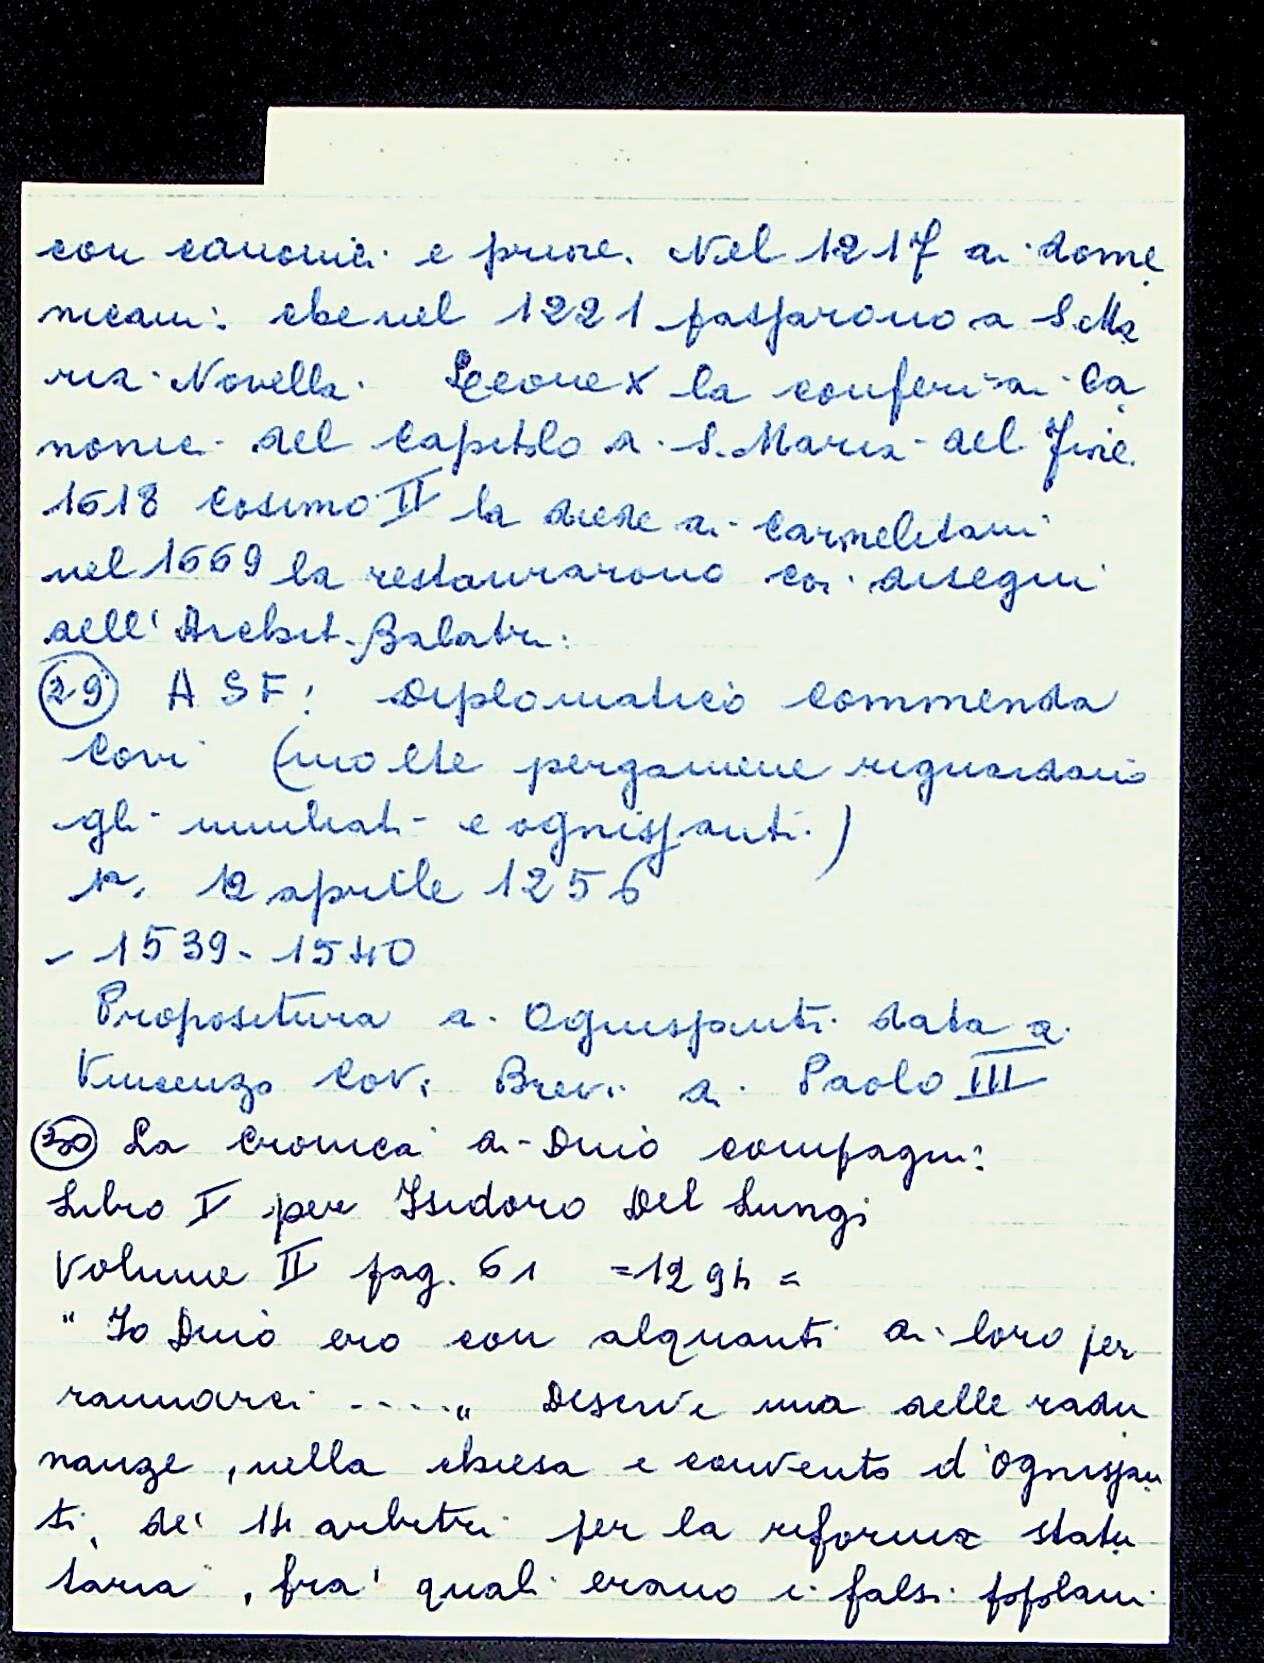 con canonici e priore. Nel 1217 ai dome
nicani: che nel 1221 passarono a S. Ma
ria Novella. Leone X la conferì ai Ca
nonici del Capitolo di S. Maria del Fiore.
1618 Cosimo II la diede ai Carmelitani
nel 1669 la restaurarono coi disegni
dell'Archit. Balatri:
(29) ASF: Diplomatico Commenda
Covi (molte pergamene riguardano
gli umiliati e ognissanti.)
12 aprile 1256
- 1539 - 1540
Propositura di Ognissanti data a
Vincenzo Covi Brevi di Paolo III
(30) La Cronica di Dino Compagni:
Libro I per Isidoro Del Lungi
Volume II pag. 61 =1294=
"Io Dino ero con alquanti di loro per
raunarci ...." Descrive una delle radu
nanze, nella chiesa e convento d'Ognissan
ti, dei 14 arbitri per la riforma statu
taria, fra i quali erano i falsi popolani